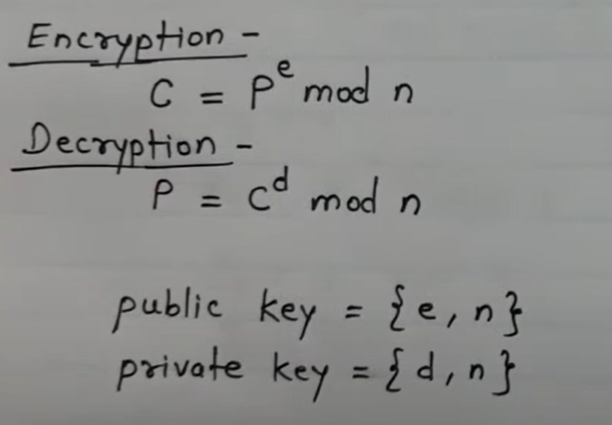 Encryption -
C = P^e mod n
Decryption -
P = C^d mod n
public key = {e, n}
private key = {d, n}